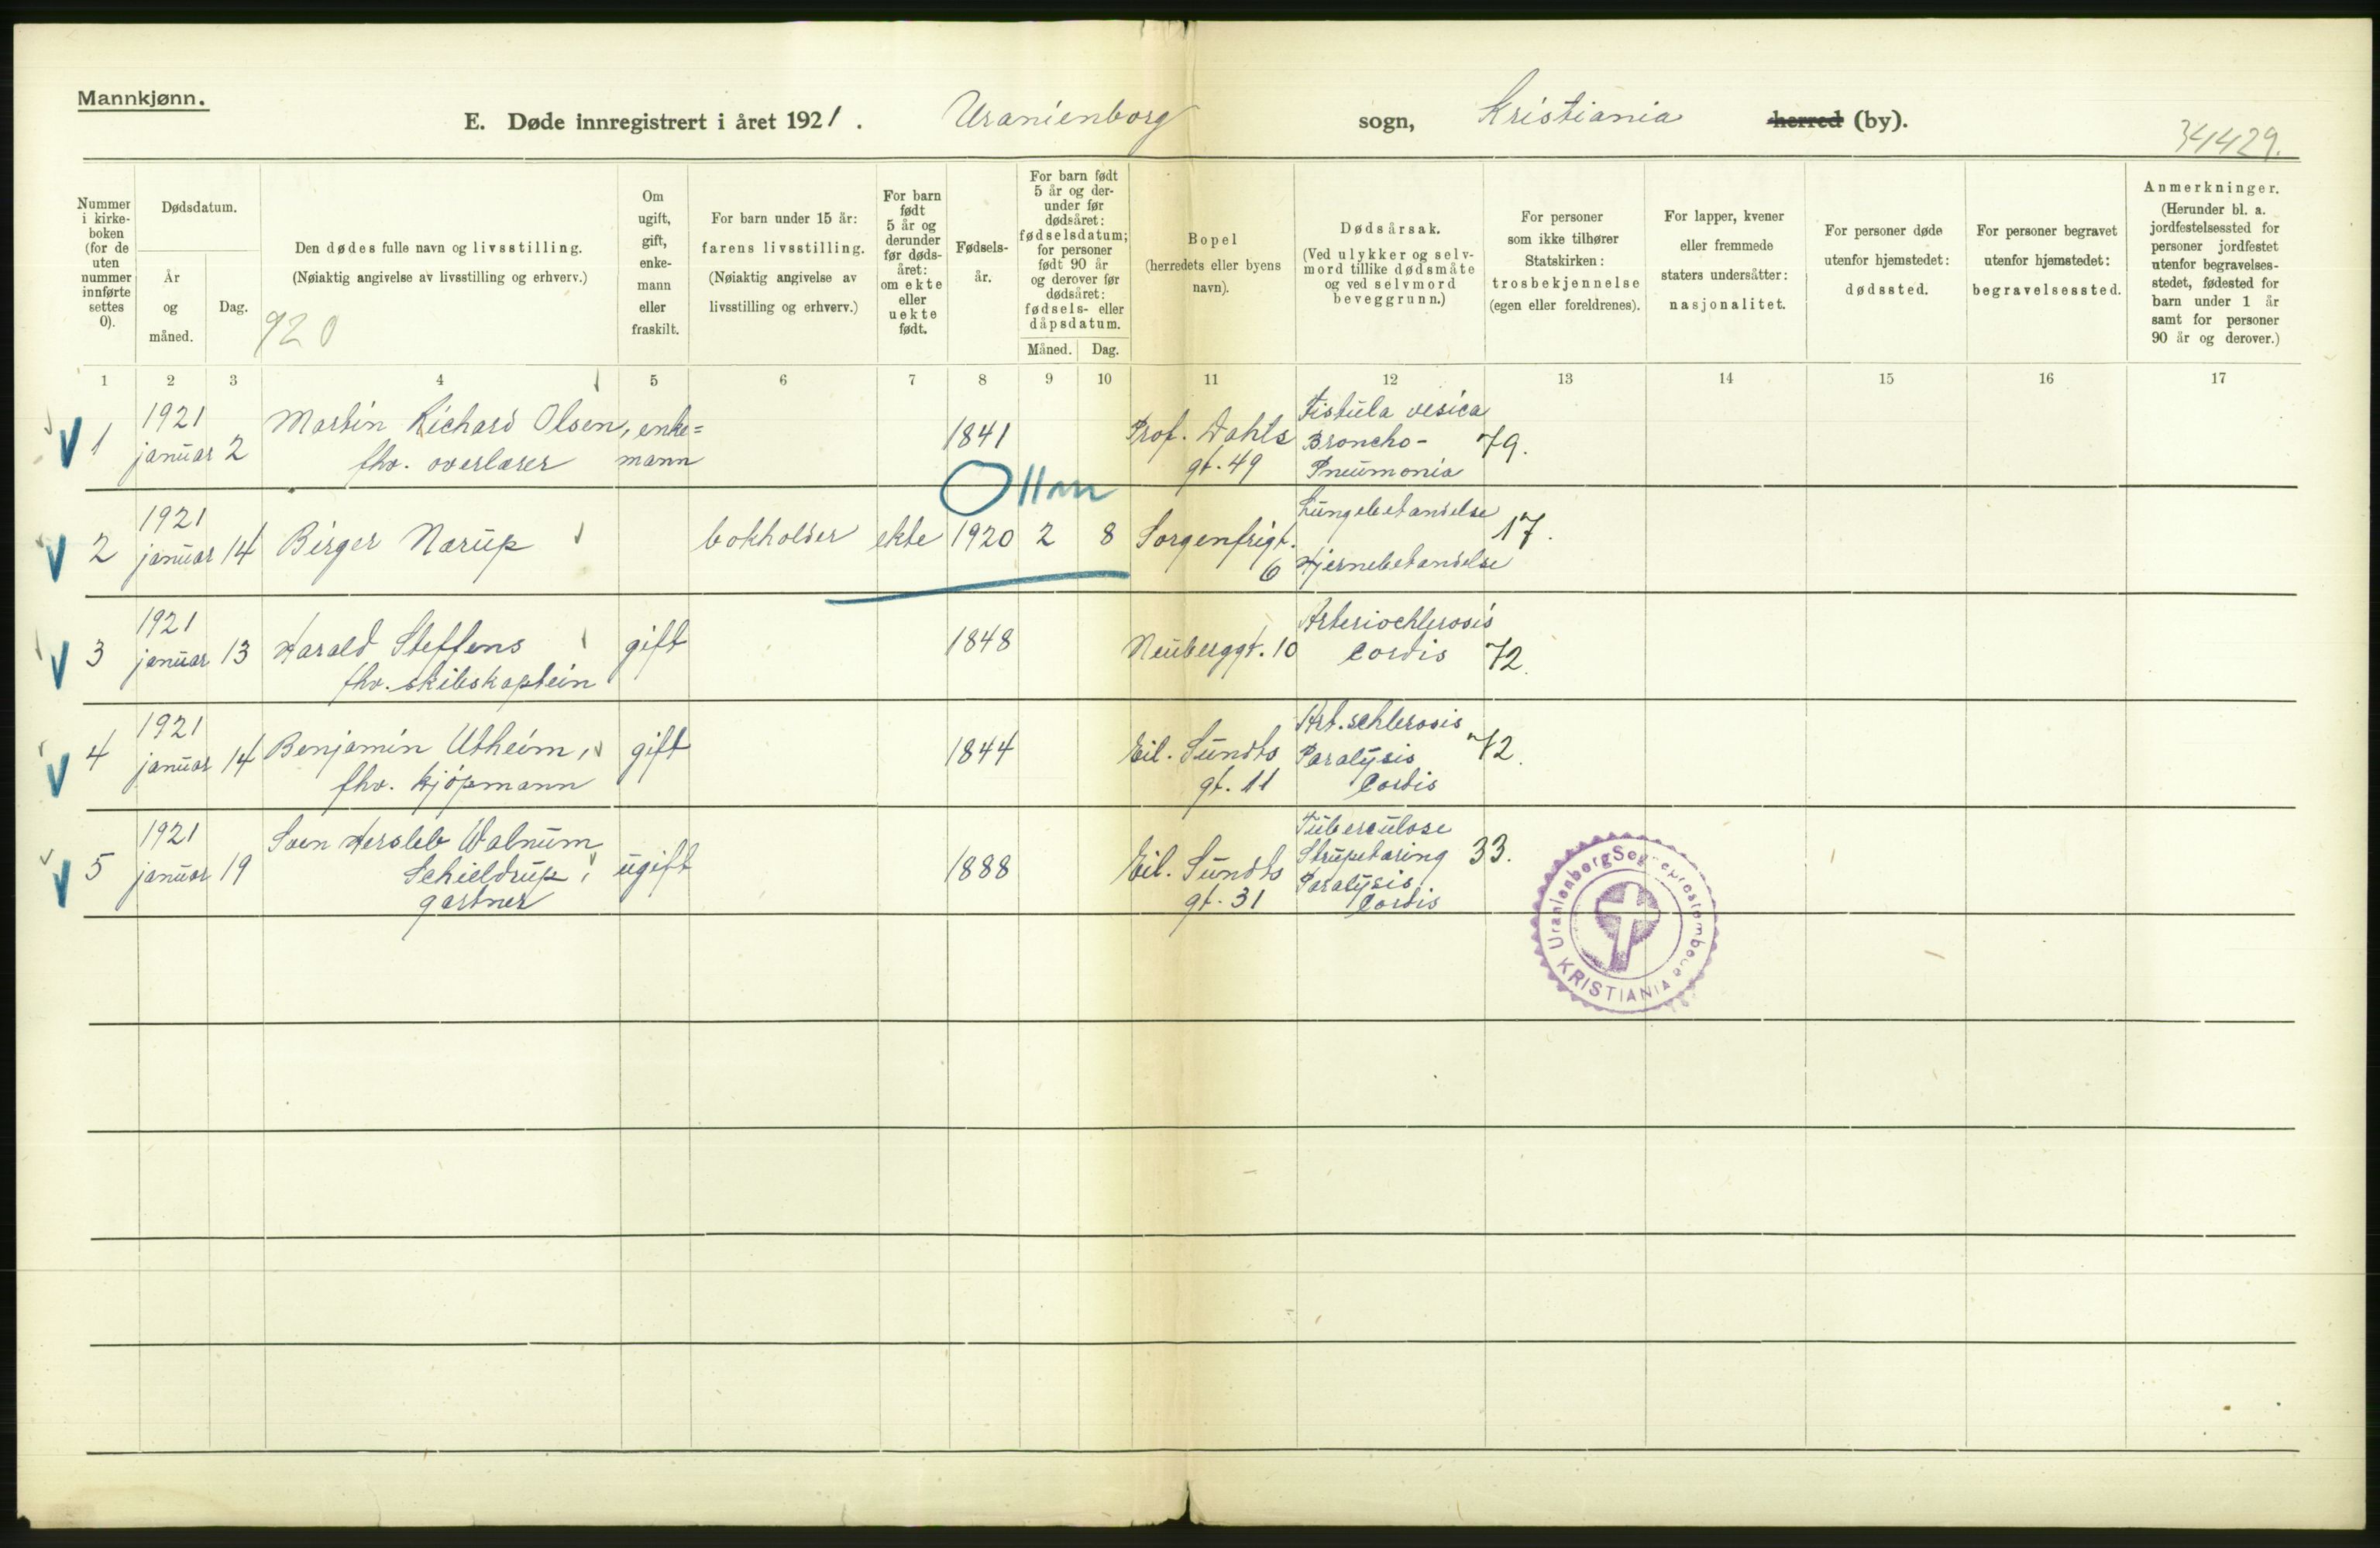 Mannkjønn.
E. Døde innregistrert i året 1921. Uranienborg sogn, Kristiania herred (by).
34429.
Nummer i kirkeboken (for de uten nummer innførte settes 0).
Dødsdatum.
År og måned.
Dag.
Den dødes fulle navn og livsstilling.
(Nøiaktig angivelse av livsstilling og erhverv.)
920
Om ugift, gift, enkemann eller fraskilt.
For barn under 15 år: farens livsstilling.
(Nøiaktig angivelse av livsstilling og erhverv.)
For barn født 5 år og derunder før dødsåret: om ekte eller uekte født.
Fødselsår.
For barn født 5 år og derunder før dødsåret: fødselsdatum; for personer født 90 år og derover før dødsåret: fødsels- eller dåpsdatum.
Måned. Dag.
Bopel
(herredets eller byens navn).
Dødsårsak.
(Ved ulykker og selvmord tillike dødsmåte og ved selvmord beveggrunn.)
For personer som ikke tilhører Statskirken: trosbekjennelse (egen eller foreldrenes).
For lapper, kvener eller fremmede staters undersåtter: nasjonalitet.
For personer døde utenfor hjemstedet: dødssted.
For personer begravet utenfor hjemstedet: begravelsessted.
Anmerkninger.
(Herunder bl. a. jordfestelsessted for personer jordfestet utenfor begravelsesstedet, fødested for barn under 1 år samt for personer 90 år og derover.)
1 2 3 4 5 6 7 8 9 10 11 12 13 14 15 16 17
1 1921 januar 2 Martin Richard Olsen, fhv. overlærer enke=mann 1841 Prof. Dahls gt. 49 Fistula vesica Broncho-Pneumonia 79.
11 m
2 1921 januar 14 Birger Narup bokholder ekte 1920 2 8 Sorgenfrigt. 6 Lungebetandelse Hjernebetandelse 17.
3 1921 januar 13 Harald Steffens fhv. skibskaptein gift 1848 Neuberggt. 10 Arteriochlerosis Cordis 72.
4 1921 januar 14 Benjamin Utheim, fhv. kjøpmann gift 1844 Eil. Sundts gt. 11 Art. schlerosis Paralysis Cordis 72.
5 1921 januar 19 Sven Hersleb Walnum Schieldrup, gartner ugift 1888 Eil. Sundts gt. 31 Tuberculose Strupetaring Paralysis Cordis 33.
Uranienborg Sogneprestembede
KRISTIANIA